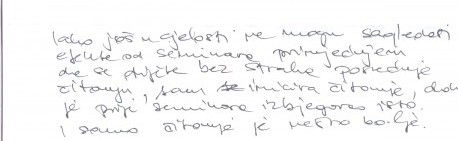 Iako još u cjelosti ne mogu sagledati
efekte od seminara, primjećujem
da se dijete bez straha posvećuje
čitanju, sam se inicira čitanje, dok
je prije seminara izbjegavao isto.
I samo čitanje je nešto bolje.